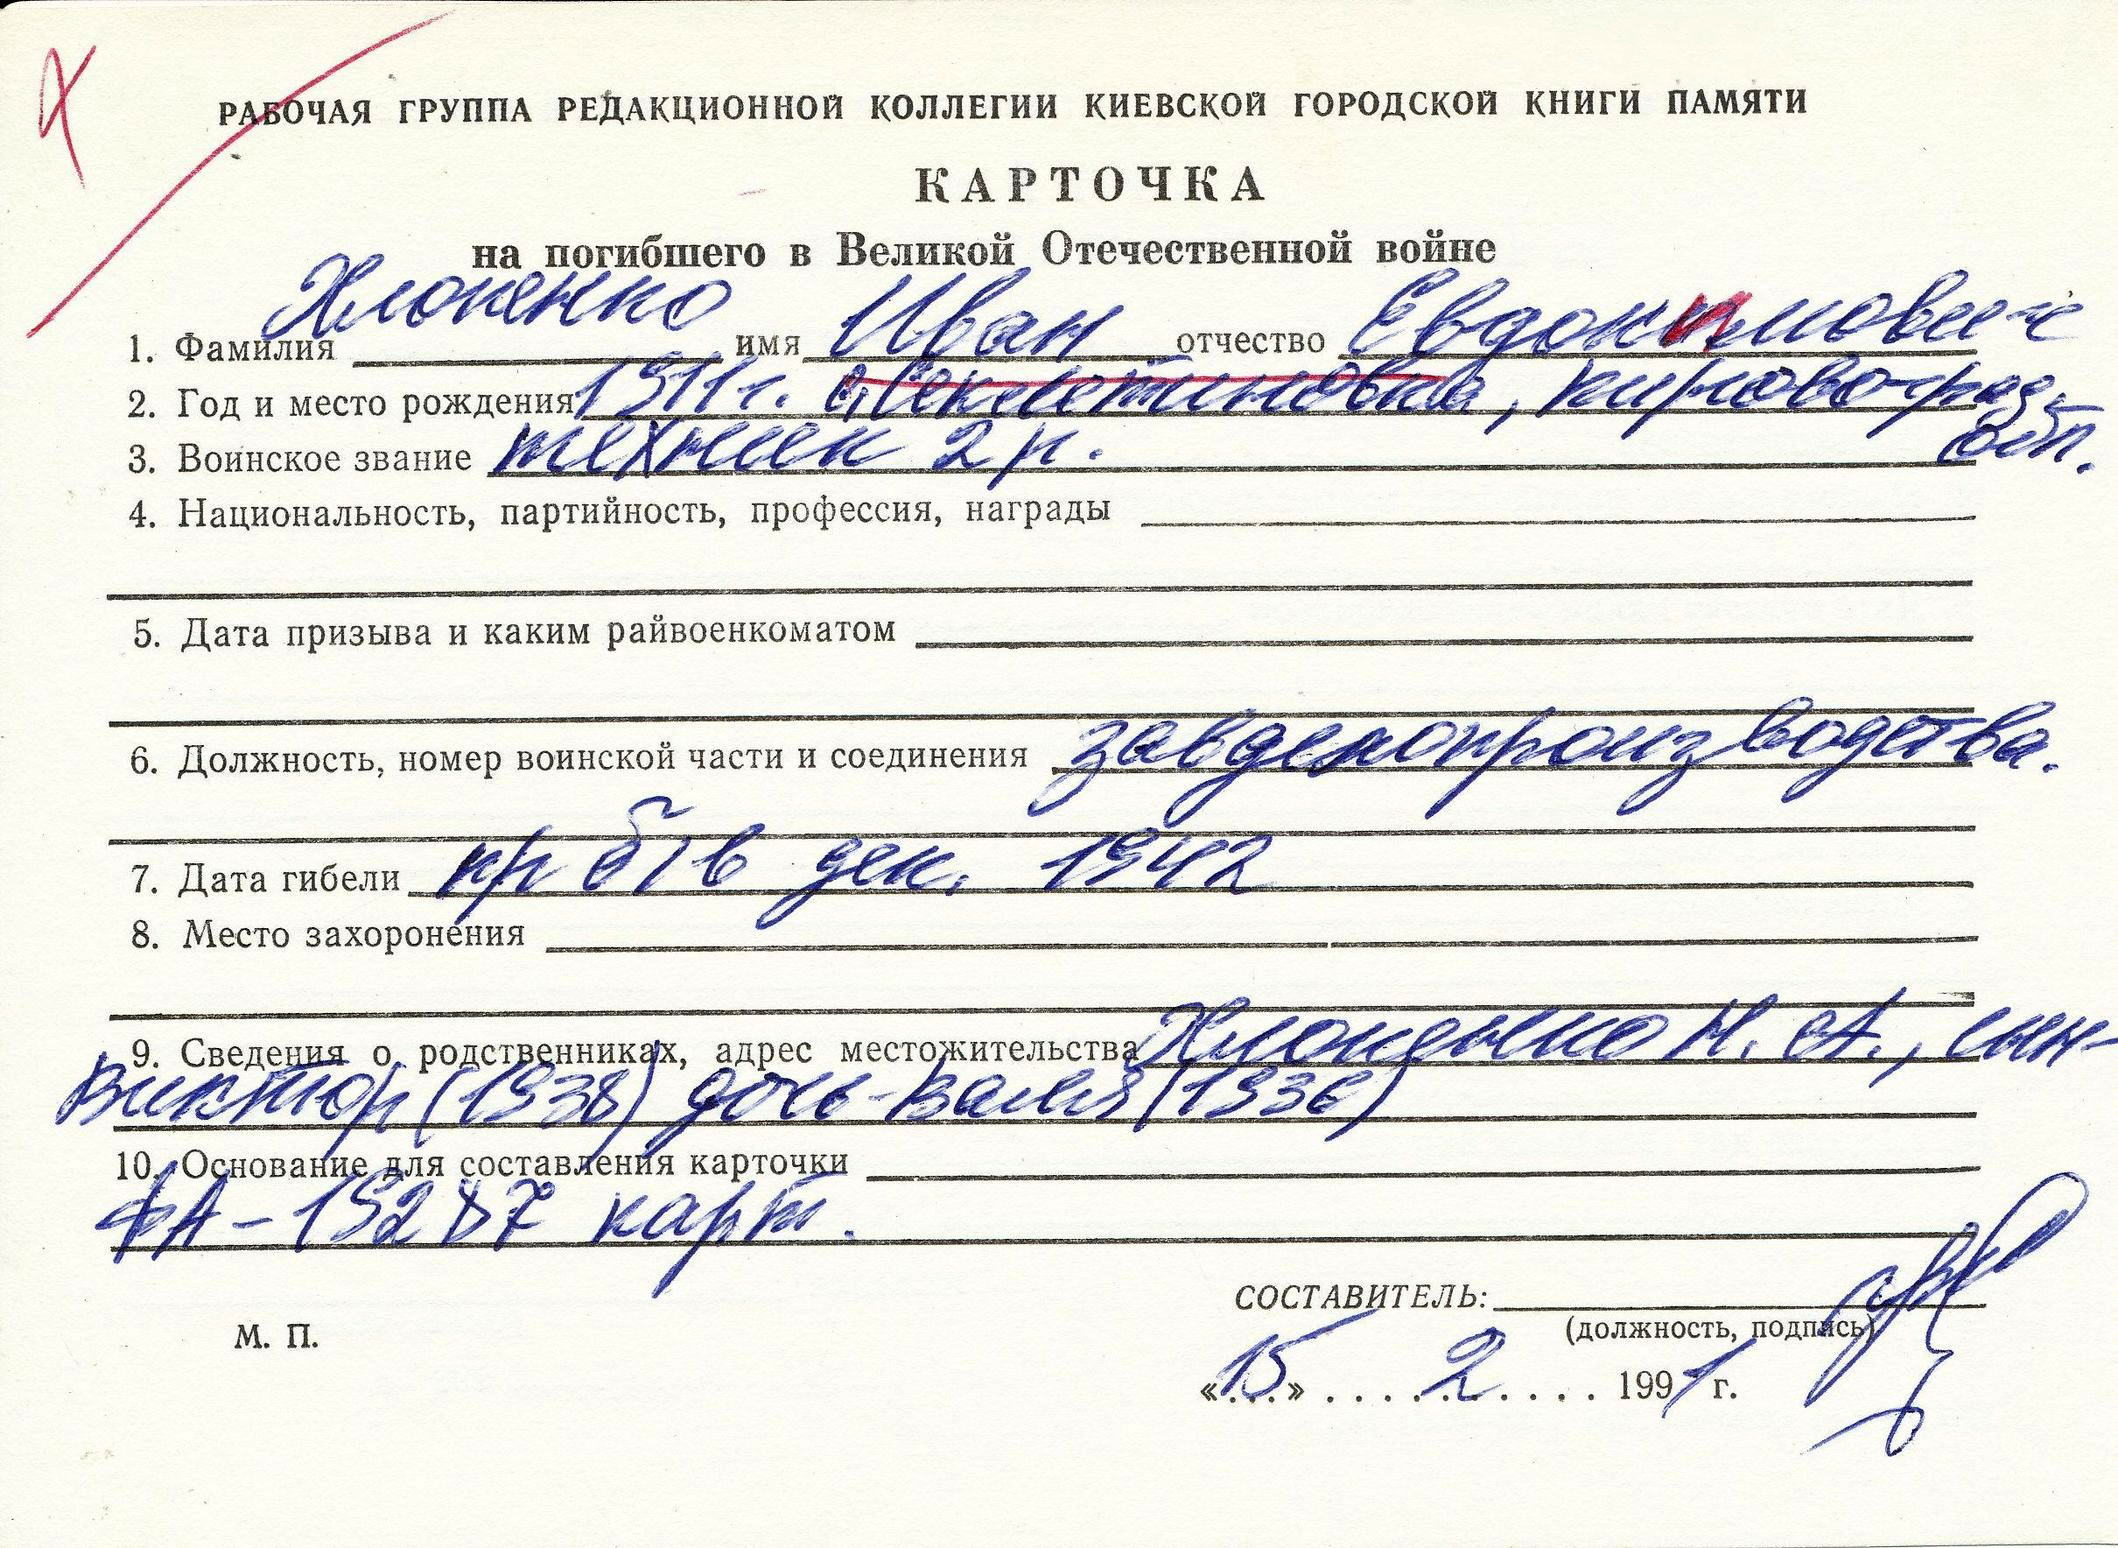 РАБОЧАЯ ГРУППА РЕДАКЦИОННОЙ КОЛЛЕГИИ КИЕВСКОЙ ГОРОДСКОЙ КНИГИ ПАМЯТИ
КАРТОЧКА
на погибшего в Великой Отечественной войне
1. Фамилия имя Иван отчество Евдокимович
2. Год и место рождения 1911 г. с. Секлетиновка, Кировоград.
3. Воинское звание техник 2 р. обл.
4. Национальность, партийность, профессия, награды
5. Дата призыва и каким райвоенкоматом
6. Должность, номер воинской части и соединения завделопроизводства.
7. Дата гибели пр б/в дек. 1942
8. Место захоронения
9. Сведения о родственниках, адрес местожительства Н. А., сын-
Виктор (1938) дочь-Валя (1936)
10. Основание для составления карточки
ФА-15287 карт.
СОСТАВИТЕЛЬ:
(должность, подпись)
М. П.
«15» 2 1991 г.